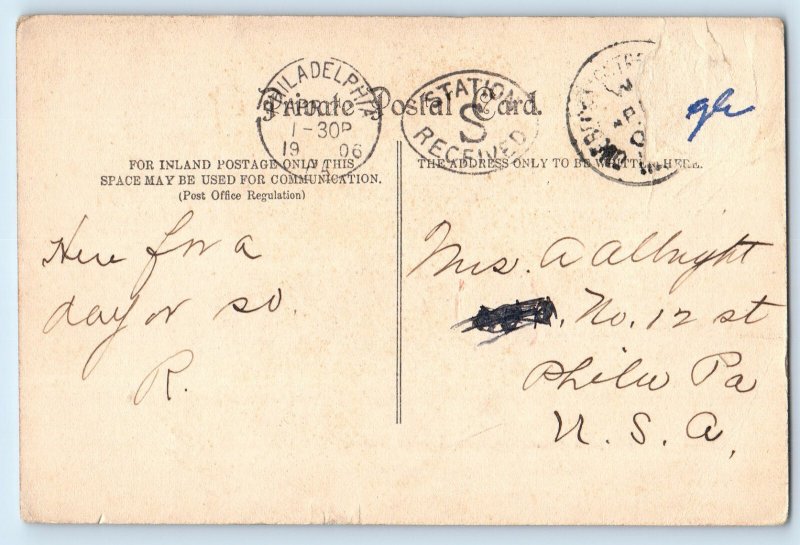 PHILADELPHIA
APR
1-30P
19 06
PA
STATION
S
RECEIVED
Private Postal Card.
FOR INLAND POSTAGE ONLY THIS
SPACE MAY BE USED FOR COMMUNICATION.
(Post Office Regulation)
THE ADDRESS ONLY TO BE WRITTEN HERE.
Here for a
day or so.
R.
Mrs. A Albright
No. 12 st
Phila Pa
U. S. A.